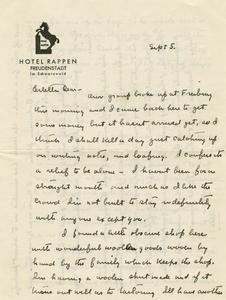 HOTEL RAPPEN
FREUDENSTADT
Im Schwarzwald
Sept 5.
Dear—
Our group broke up at Freiburg
this morning and I came back here to get
some money but it hasn't arrived yet, so I
think I shall kill a day just catching up
on writing notes, and loafing. I confess to
a relief to be alone — I haven't been for a
straight month and much as I like the
crowd I'm not built to stay indefinitely
with anyone except you.
I found a little obscure shop here
with wonderful woolen goods woven by
hand by the family which keeps the shop.
Am having a woolen skirt made and if it
turns out well as to tailoring I'll have another